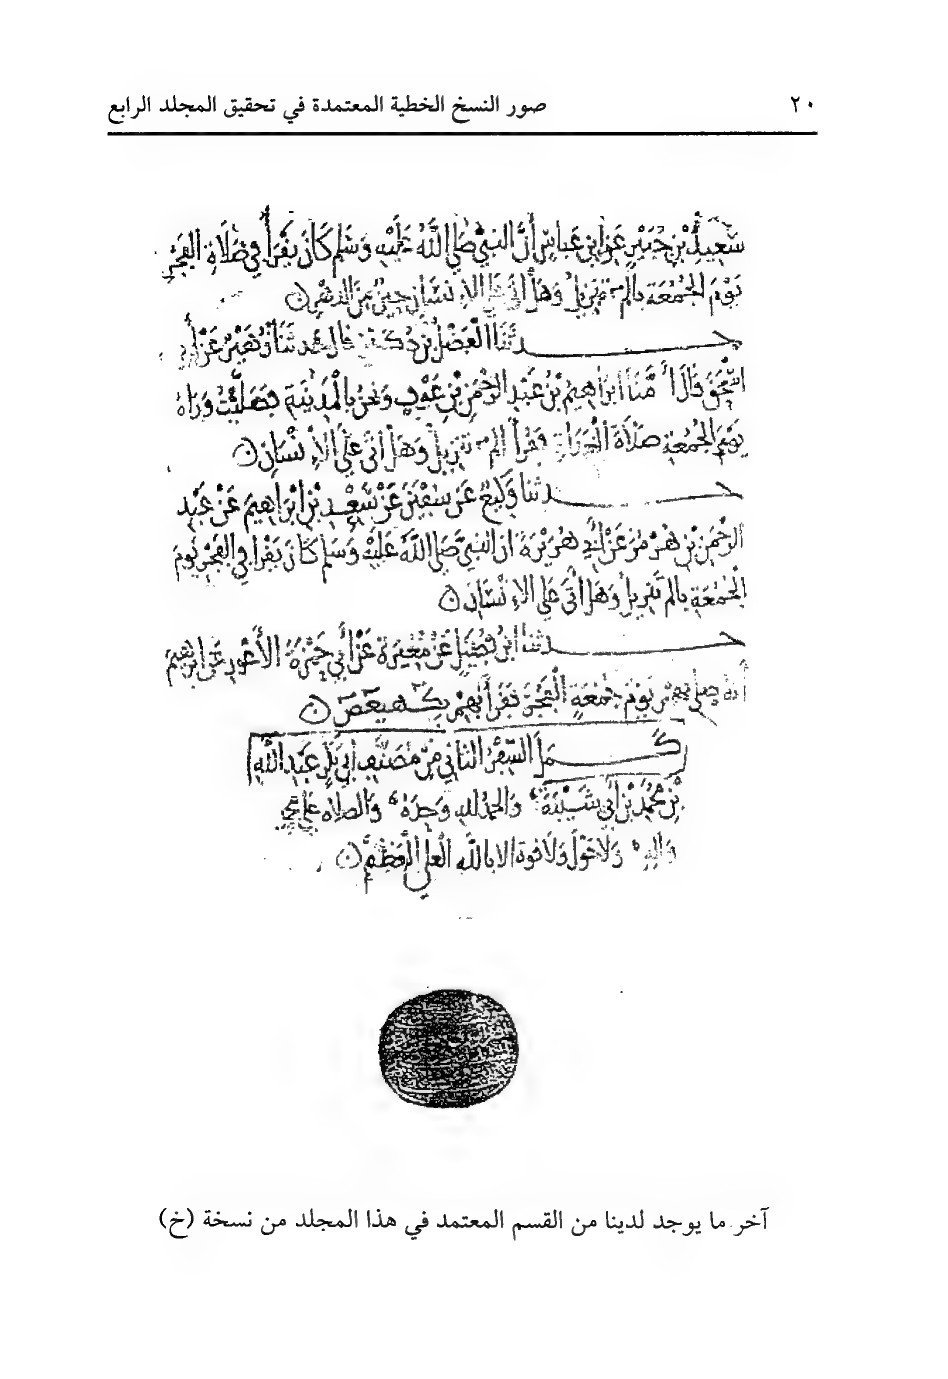 ٢٠ صور النسخ الخطية المعتمدة في تحقيق المجلد الرابع
سَعِيدِ بْنِ جُبَيْرٍ عَنِ ابْنِ عَبَّاسٍ أَنَّ النبيَّ صَلَّى اللَّهُ عَلَيْهِ وَسَلَّم كَانَ يَقْرَأُ فِي صَلَاةِ الفَجْرِ
يَوْمَ الْجُمُعَةِ بالم تنزيل وَهَلْ أَتَى عَلَى الإِنْسَانِ حِينٌ مِنَ الدَّهْرِ
حدثَنَا الْفَضْلُ بْنُ دُكَيْنٍ قال حدثنا زُهَيْرٌ عَنْ أبي
إسْحَقَ قَالَ أَمَّنَا إبْرَاهِيمُ بْنُ عَبْدِ الرَّحْمَنِ بْنِ عَوْفٍ وَنَحْنُ بالْمَدِينَةِ فصَلَّيْتُ وَرَاهُ
يَوْمَ الجُمُعَةِ صَلَاةَ الْغَدَاةِ فقرأ الم تنزيل وَهَلْ أَتَى عَلَى الإِنْسَانِ
حدثنا وَكِيعٌ عَنْ سفينَ عَنْ سَعْدِ بْنِ إبْرَاهِيمَ عَنْ عَبْدِ
الرَّحْمَنِ بْنِ هُرْمُزَ عَنْ أَبِي هُرَيْرَةَ ان النبيَّ صَلَّى اللَّهُ عَلَيْهِ وَسَلم كَانَ يَقْرَأ في الفَجْرِ يَوْمَ
الْجُمُعَةِ بالم تنزيل وَهَلْ أَتَى عَلَى الإِنْسَانِ
حدثنا ابْنُ فُضَيْلٍ عَنْ مُغِيرَةَ عَنْ أَبِي حَمْزَةَ الأَعْوَرِ عَنْ ابرهيمَ
أنهُ صلى بهم يَوْمَ جُمُعَةٍ الْفَجْرَ فَقَرَأَ بِهِمْ بكهيعص
كمل السِّفْرُ الثاني مِنْ مُصَنَّفِ أبي بَكْرٍ عَبْدِ اللَّهِ
بْنِ مُحَمَّدِ بْنِ أَبِي شَيْبَةَ والحمدُ للهِ وَحدَهُ والصلاة على محمد
وآله وَلَا حَوْلَ وَلَا قوة الا بالله الْعَلِيِّ الْعَظِيمِ
آخر ما يوجد لدينا من القسم المعتمد في هذا المجلد من نسخة (خ)